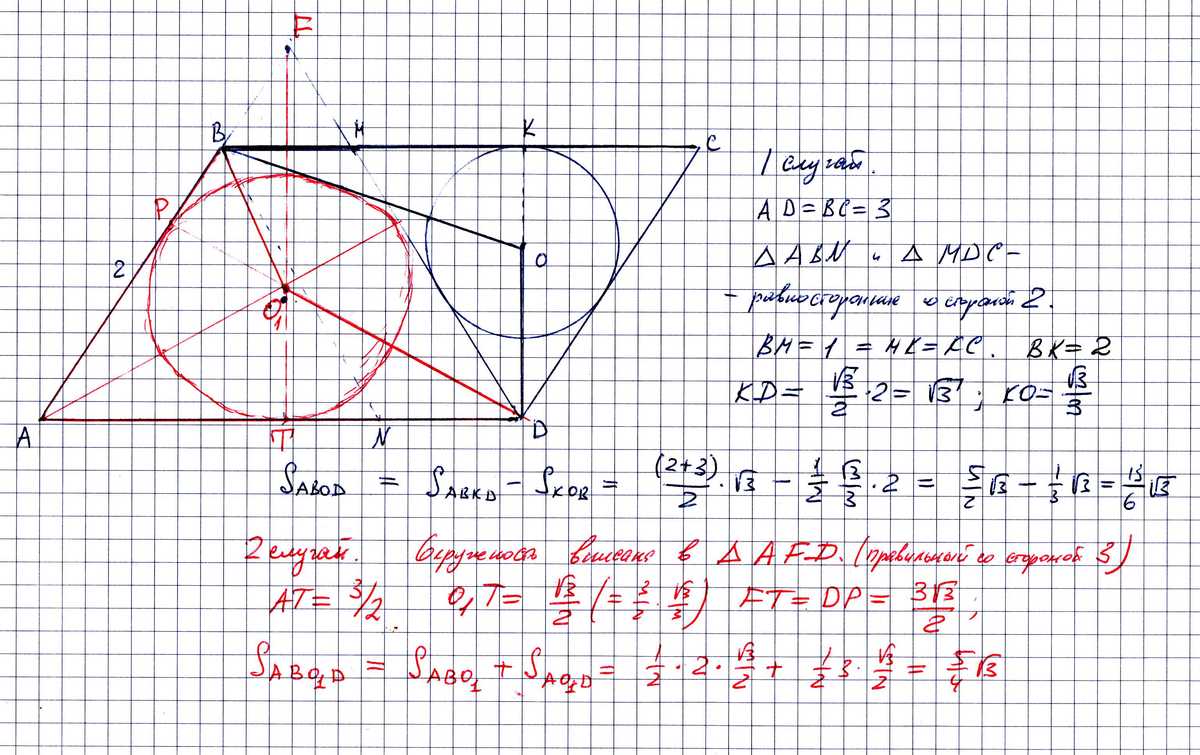 F
B M K C
P
2
O
O₁
A T N D
1 случай.
AD = BC = 3
Δ ABN и Δ MDC –
– равносторонние со стороной 2.
BM = 1 = MK = KC. BK = 2
KD = √3/2 · 2 = √3 ; KO = √3/3
S_ABOD = S_ABKD – S_KOB = (2+3)/2 · √3 – 1/2 √3/3 · 2 = 5/2 √3 – 1/3 √3 = 13/6 √3
2 случай. Окружность вписана в Δ AFD. (правильный со стороной 3)
AT = 3/2 O₁T = √3/2 (= 3/2 · √3/3) FT = DP = 3√3/2 ;
S_ABO₁D = S_ABO₁ + S_AO₁D = 1/2 · 2 · √3/2 + 1/2 3 · √3/2 = 5/4 √3